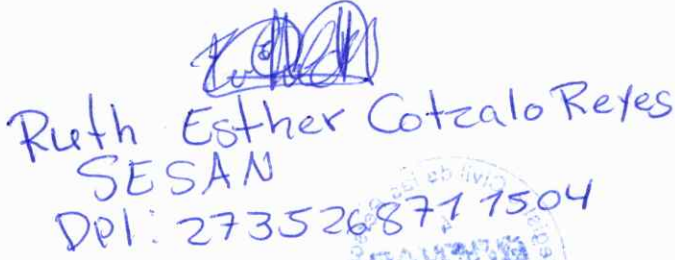 Ruth Esther Cotzalo Reyes
SESAN
DPI: 273526871 1504